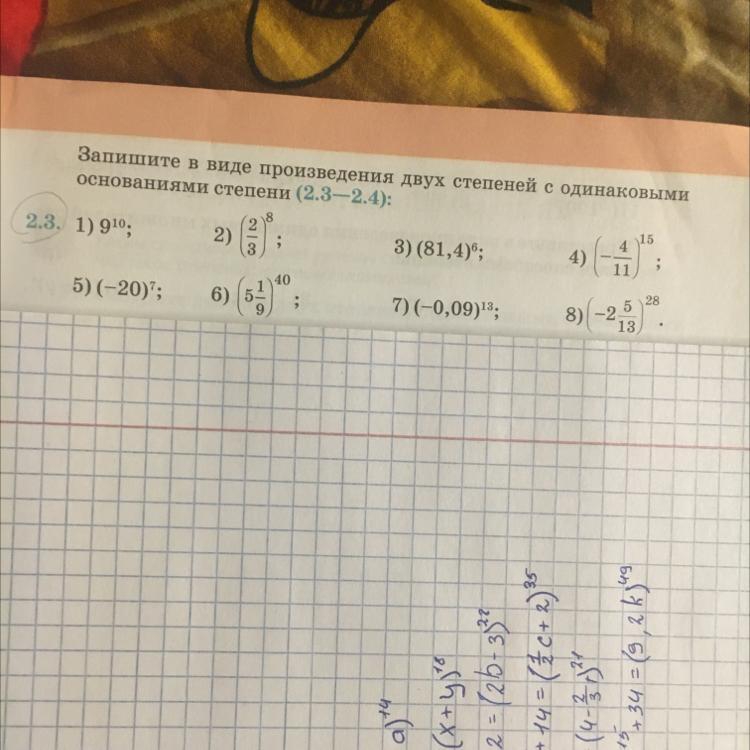 Запишите в виде произведения двух степеней с одинаковыми
основаниями степени (2.3—2.4):
2.3. 1) 9¹⁰; 2) (2/3)⁸; 3) (81,4)⁶; 4) (−4/11)¹⁵;
5) (−20)⁷; 6) (5 1/9)⁴⁰; 7) (−0,09)¹³; 8) (−2 5/13)²⁸.
a)¹⁴
(x+y)¹⁸
2 = (2b-3)²²
+ 14 = (1/2 c + 2)³⁵
15 + 34 = (9,2k)⁴⁹